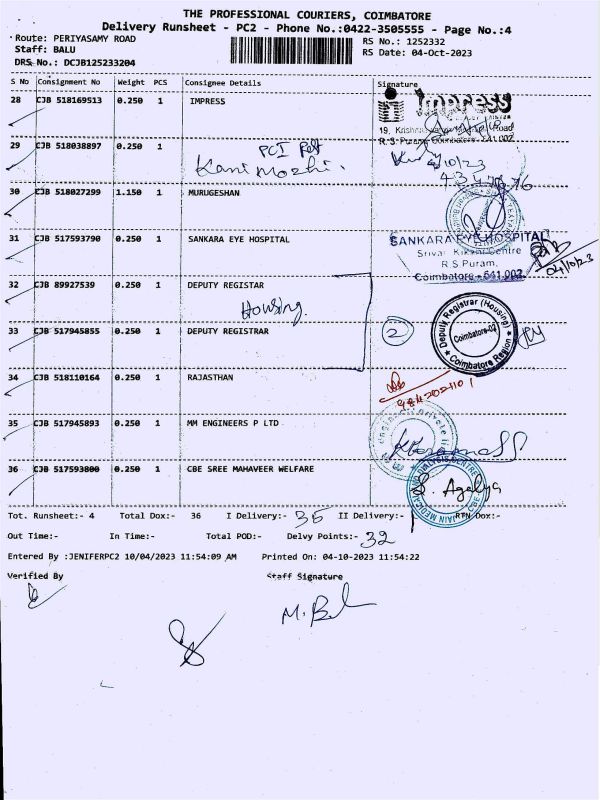 THE PROFESSIONAL COURIERS, COIMBATORE
Delivery Runsheet - PC2 - Phone No.:0422-3505555 - Page No.:4
Route: PERIYASAMY ROAD
RS No.: 1252332
Staff: BALU
RS Date: 04-Oct-2023
DRS No.: DCJB125233204
S No Consignment No Weight PCS Consignee Details Signature
28 CJB 518169513 0.250 1 IMPRESS
impress
19, Krishna Road
R.S.Puram, Coimbatore - 641 002
29 CJB 518038897 0.250 1 PCI
Kani Mozhi.
4/10/23
30 CJB 518027299 1.150 1 MURUGESHAN
31 CJB 517593790 0.250 1 SANKARA EYE HOSPITAL
SANKARA EYE HOSPITAL
Centre
R.S.Puram,
Coimbatore - 641 002
04/10/23
32 CJB 89927539 0.250 1 DEPUTY REGISTAR
Housing
33 CJB 517945855 0.250 1 DEPUTY REGISTRAR
2
Deputy Registrar (Housing)
Coimbatore-02
Coimbatore Region
34 CJB 518110164 0.250 1 RAJASTHAN
35 CJB 517945893 0.250 1 MM ENGINEERS P LTD
36 CJB 517593800 0.250 1 CBE SREE MAHAVEER WELFARE
S. Agalya
Tot. Runsheet:- 4 Total Dox:- 36 I Delivery:- 35 II Delivery:- 1 RTN Dox:-
Out Time:- In Time:- Total POD:- Delvy Points:- 32
Entered By :JENIFERPC2 10/04/2023 11:54:09 AM Printed On: 04-10-2023 11:54:22
Verified By Staff Signature